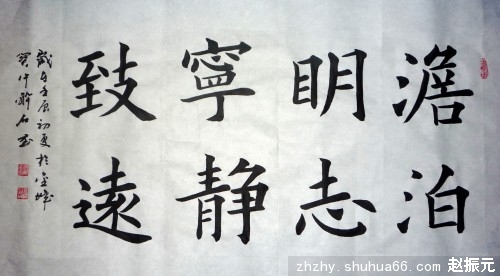 澹泊
明志
寧静
致遠
歲在初夏於
zhzhy.shuhua66.com 赵振元